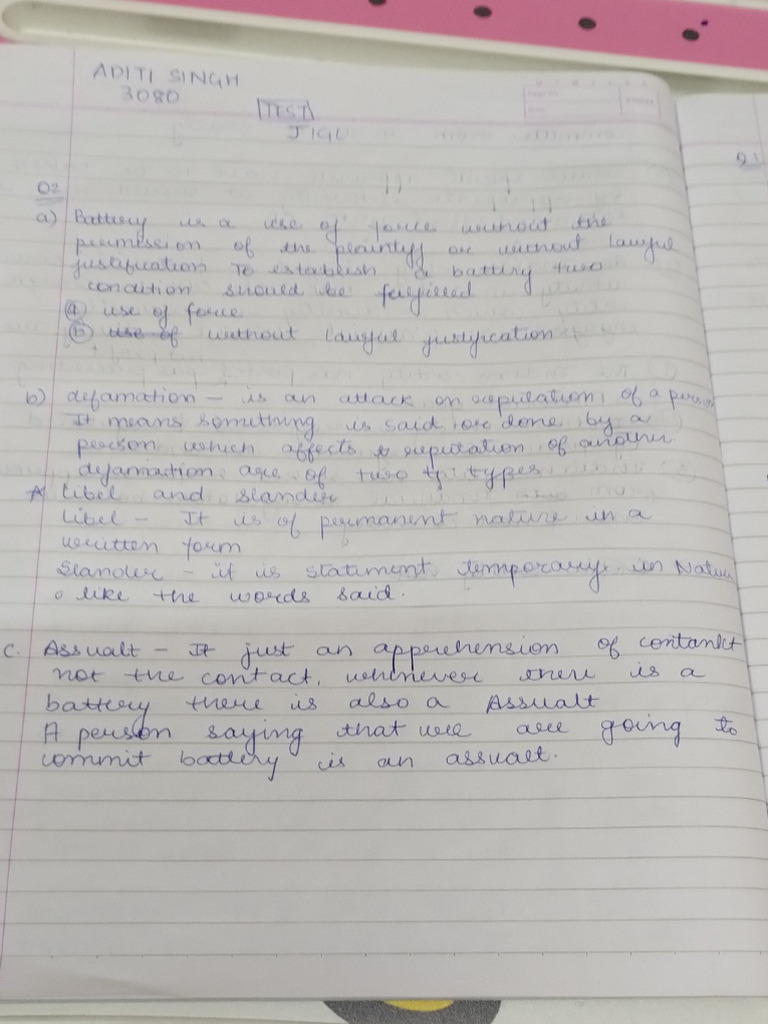 ADITI SINGH
3080
TEST
JIGL
Q1
Q2
a) Battery is a use of force without the
permission of the plaintiff or without lawful
justification To establish a battery two
condition should be fulfilled
(a) use of force
(b) use of without lawful justification
b) defamation – is an attack on reputation, of a person
It means something is said or done by a
person which affects reputation of another
defamation are of two types
libel and slander
libel – It is of permanent nature in a
written form
Slander – it is statement temporary in Nature
like the words said.
C. Assualt – It just an apprehension of contankt
not the contact, whenever there is a
battery there is also a Assualt
A person saying that we are going to
commit battery is an assualt.